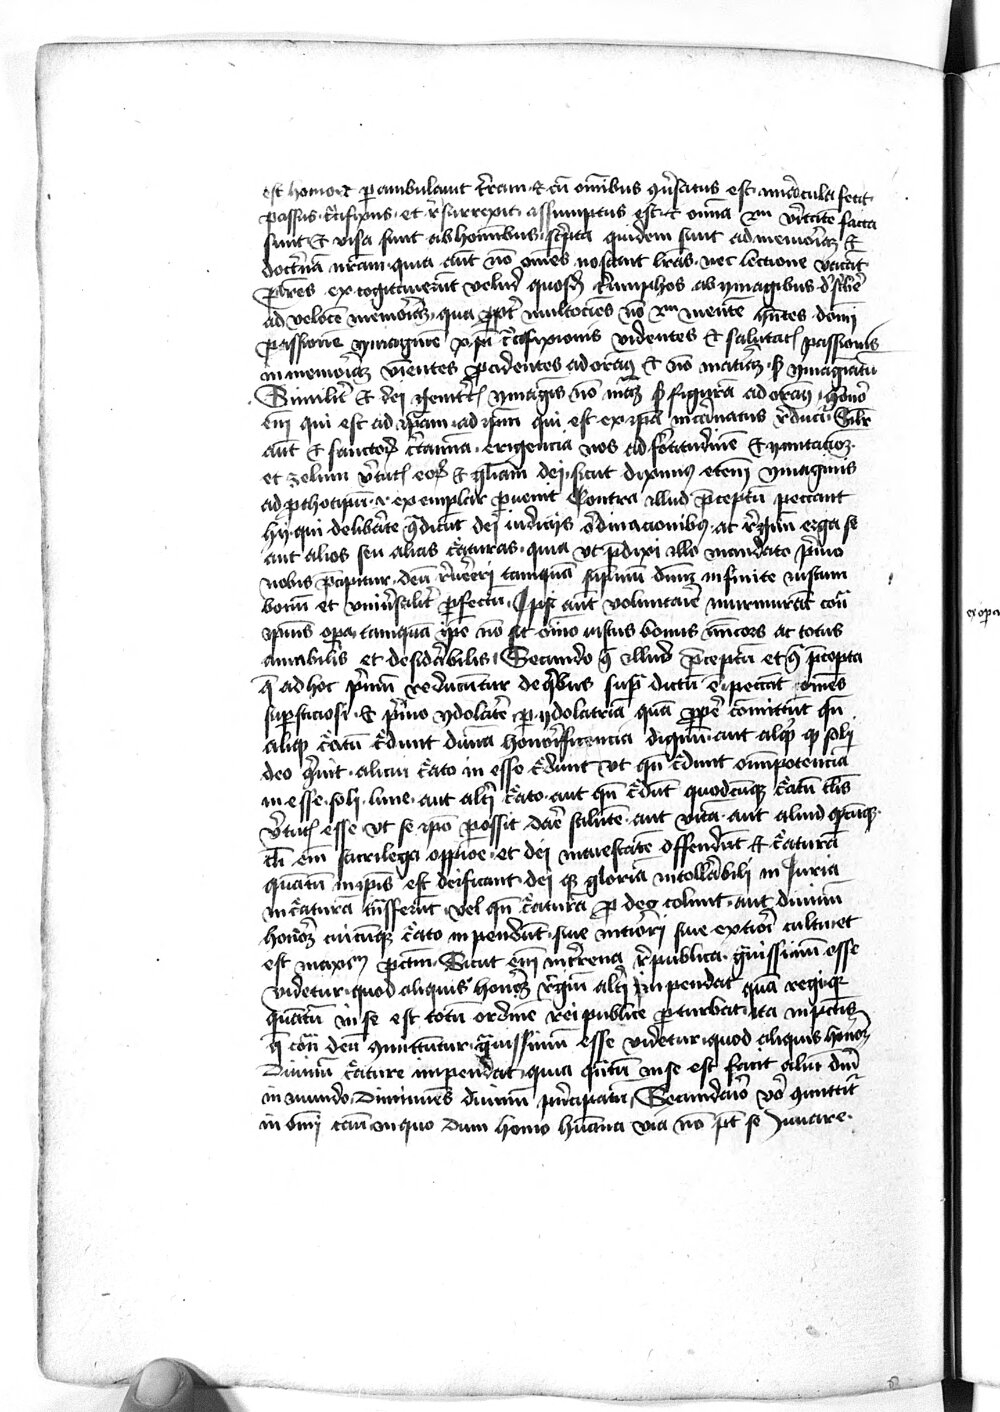 est homo et perambulavit terram et cum omnibus conversatus est miracula fecit
passus crucifixus et resurrexit assumptus est et omnia in veritate facta
sunt et visa sunt ab hominibus scripta quidem sunt ad memoriam et
doctrinam nostram quia autem non omnes noscunt literas nec lectione vacant
patres excogitaverunt velud quosdam triumphos ab ymaginibus describere
ad velocem memoriam quia propter multocies non in mente habentes domini
passionem ymaginem christi crucifixionis videntes et salutaris passionis
in memoriam venientes procidentes adoramus et non materiam sed ymaginatum
Similiter et dei genitricis ymaginis non materiam sed figuram adoramus honor
enim qui est ad ipsam ad ipsum qui est ex ipsa incarnatus reducitur Similiter
autem et sanctorum certamina erigencia nos ad fortitudinem et ymitacionem
et zelum virtutis eorum et gloriam dei sicut diximus etenim ymaginis
ad prothotipum et exemplar pervenit Contra illud preceptum peccant
hii qui deliberate contradicunt dei iudiciis ordinacionibus ac regimini erga se
aut alios seu alias creaturas quia ut predixi illo mandato primo
nobis precipitur deum revereri tamquam supremum dominum infinite iustum
bonum et universaliter perfectum Ipsi autem voluntarie murmurant contra
ipsius opera tamquam ipse non sit omnino iustus bonus misericors ac totus
amabilis et desiderabilis Secundo contra illud preceptum et contra precepta
que ad hoc primum reducuntur de quibus supra dictum est peccant omnes
supersticiosi et primo ydolatre per ydolatriam quam proprie committunt quando
aliquod creatum credunt divina honorificencia dignum aut aliquid quod soli
deo convenit alicui creato inesse credunt ut quando credunt omnipotenciam
inesse soli lune aut alteri creato aut quando credunt quodcumque creatum talis
virtutis esse ut se ipso possit dare salutem aut vitam aut aliud quodcumque
tali enim sacrilega opinione et dei maiestatem offendunt et creaturam
quantum in ipsis est deificant dei que gloriam intollerabili iniuria
in creaturam transferunt vel quando creaturam pro deo colunt aut divinum
honorem cuicumque creato inpendunt sive interiori sive exteriori cultu et
est maximum peccatum Sicut enim in terrena republica gravissimum esse
videtur quod aliquis honorem regium alteri inpendat quam regi quia
quantum in se est totum ordinem rei publice perturbat ita in peccatis
que contra deum committuntur gravissimum esse videtur quod aliquis honorem
Divinum creature impendat quia quantum in se est facit alium deum
in mundo Diminuens divinum principatum Secundario vero committitur
in omni casu in quo dum homo humana via non potest se iuvare
ex opere